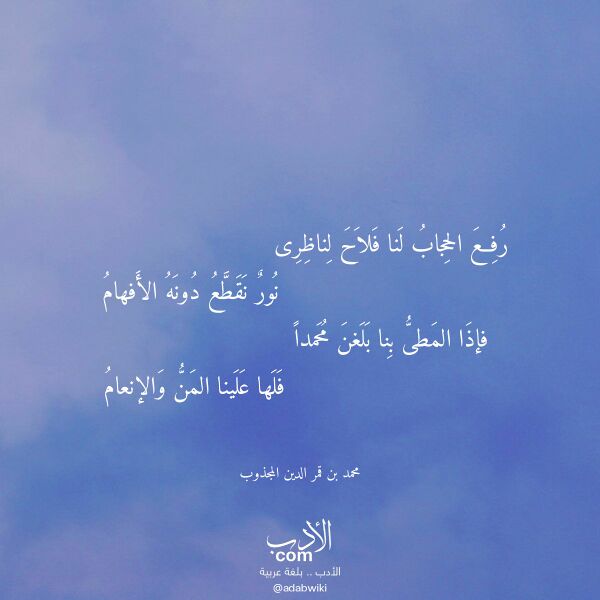 رُفِعَ الحِجابُ لَنا فَلاَحَ لِناظِرِى
نُورٌ نَقَطَّعُ دُونَهُ الأَفهامُ
فإذَا المَطىُّ بِنا بَلَغنَ مُحَمداً
فَلَها عَلَينا المَنُّ وَالإنعامُ
محمد بن قمر الدين المجذوب
الأدب
com
الأدب .. بلغة عربية
@adabwiki